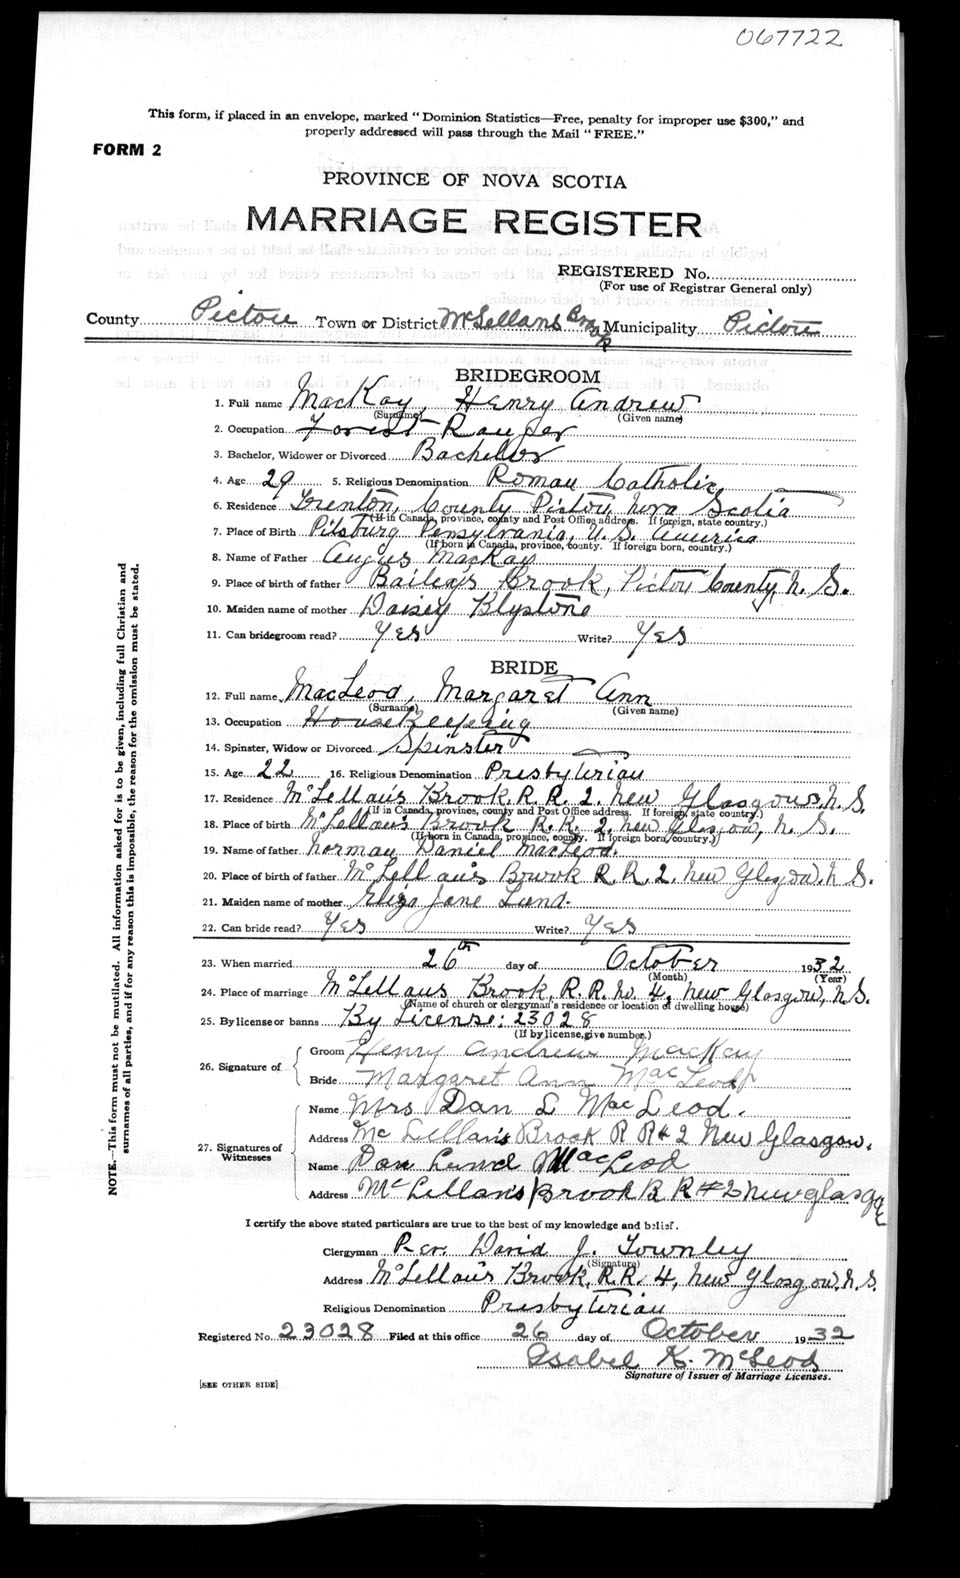 067722
This form, if placed in an envelope, marked "Dominion Statistics—Free, penalty for improper use $300," and
properly addressed will pass through the Mail "FREE."
FORM 2
PROVINCE OF NOVA SCOTIA
MARRIAGE REGISTER
REGISTERED No.
(For use of Registrar General only)
County Pictou Town or District McLellans Brook Municipality Pictou
BRIDEGROOM
1. Full name MacKay, Henry Andrew
(Surname) (Given name)
2. Occupation Forest Ranger
3. Bachelor, Widower or Divorced Bachelor
4. Age 29 5. Religious Denomination Roman Catholic
6. Residence Trenton, County Pictou, Nova Scotia
(If in Canada, province, county and Post Office address. If foreign, state country.)
7. Place of Birth Pitsburg Pensylvania, U. S. America
(If born in Canada, province, county. If foreign born, country.)
8. Name of Father Angus MacKay
9. Place of birth of father Baileys Brook, Pictou County, N. S.
10. Maiden name of mother Daisey Klystone
11. Can bridegroom read? Yes Write? Yes
BRIDE
12. Full name MacLeod, Margaret Ann
(Surname) (Given name)
13. Occupation HouseKeeping
14. Spinster, Widow or Divorced Spinster
15. Age 22 16. Religious Denomination Presbyterian
17. Residence McLellan's Brook, R. R. 2. New Glasgow, N. S.
(If in Canada, province, county and Post Office address. If foreign, state country.)
18. Place of birth McLellan's Brook R. R. 2, New Glasgow, N. S.
(If born in Canada, province, county. If foreign born, country.)
19. Name of father Norman Daniel MacLeod.
20. Place of birth of father McLellan's Brook R. R. 2. New Glasgow. N S.
21. Maiden name of mother Eliza Jane Lund.
22. Can bride read? Yes Write? Yes
23. When married 26th day of October 1932
(Month) (Year)
24. Place of marriage McLellans Brook, R. R. No. 4, New Glasgow, N. S.
(Name of church or clergyman's residence or location of dwelling house)
25. By license or banns By License: 23028
(If by license, give number.)
26. Signature of
Groom Henry Andrew MacKay
Bride Margaret Ann MacLeod
27. Signatures of Witnesses
Name Mrs Dan L MacLeod.
Address Mc Lellan's Brook R R # 2 New Glasgow.
Name Dan Lund MacLeod
Address McLellan's Brook R R #2 New glasgow
I certify the above stated particulars are true to the best of my knowledge and belief.
Clergyman Rev. David J. Townley
(Signature)
Address McLellan's Brook, R. R. 4, New Glasgow. N. S.
Religious Denomination Presbyterian
Registered No. 23028 Filed at this office 26 day of October 1932
Isabel K. McLeod
Signature of Issuer of Marriage Licenses.
[SEE OTHER SIDE]
NOTE.—This form must not be mutilated. All information asked for is to be given, including full Christian and
surnames of all parties, and if for any reason this is impossible, the reason for the omission must be stated.